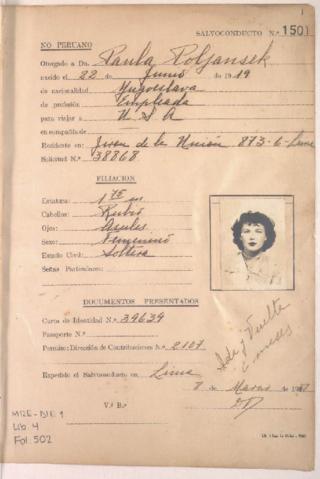 1
SALVOCONDUCTO N.º 1501
NO PERUANO
Otorgado a Dn. Paula Poljansek
nacido el 22 de Junio de 1919
de nacionalidad Yugoeslava
de profesión Empleada
para viajar a U S A
en compañía de
Residente en: Jiron de la Unión 873-6-Lima
Solicitud N.º 38868
FILIACION
Estatura: 1 75 m
Cabellos: Rubio
Ojos: Azules
Sexo: Femenino
Estado Civil: Soltera
Señas Particulares:
DOCUMENTOS PRESENTADOS
Carta de Identidad N.º 39639
Pasaporte N.º
Permiso: Dirección de Contribuciones N.º 2107
Expedido el Salvoconducto en Lima
8 Marzo de 194
V.º B.º
Ida y Vuelta
6 meses
MRE-DIE 1
Lib. 4
Fol. 502